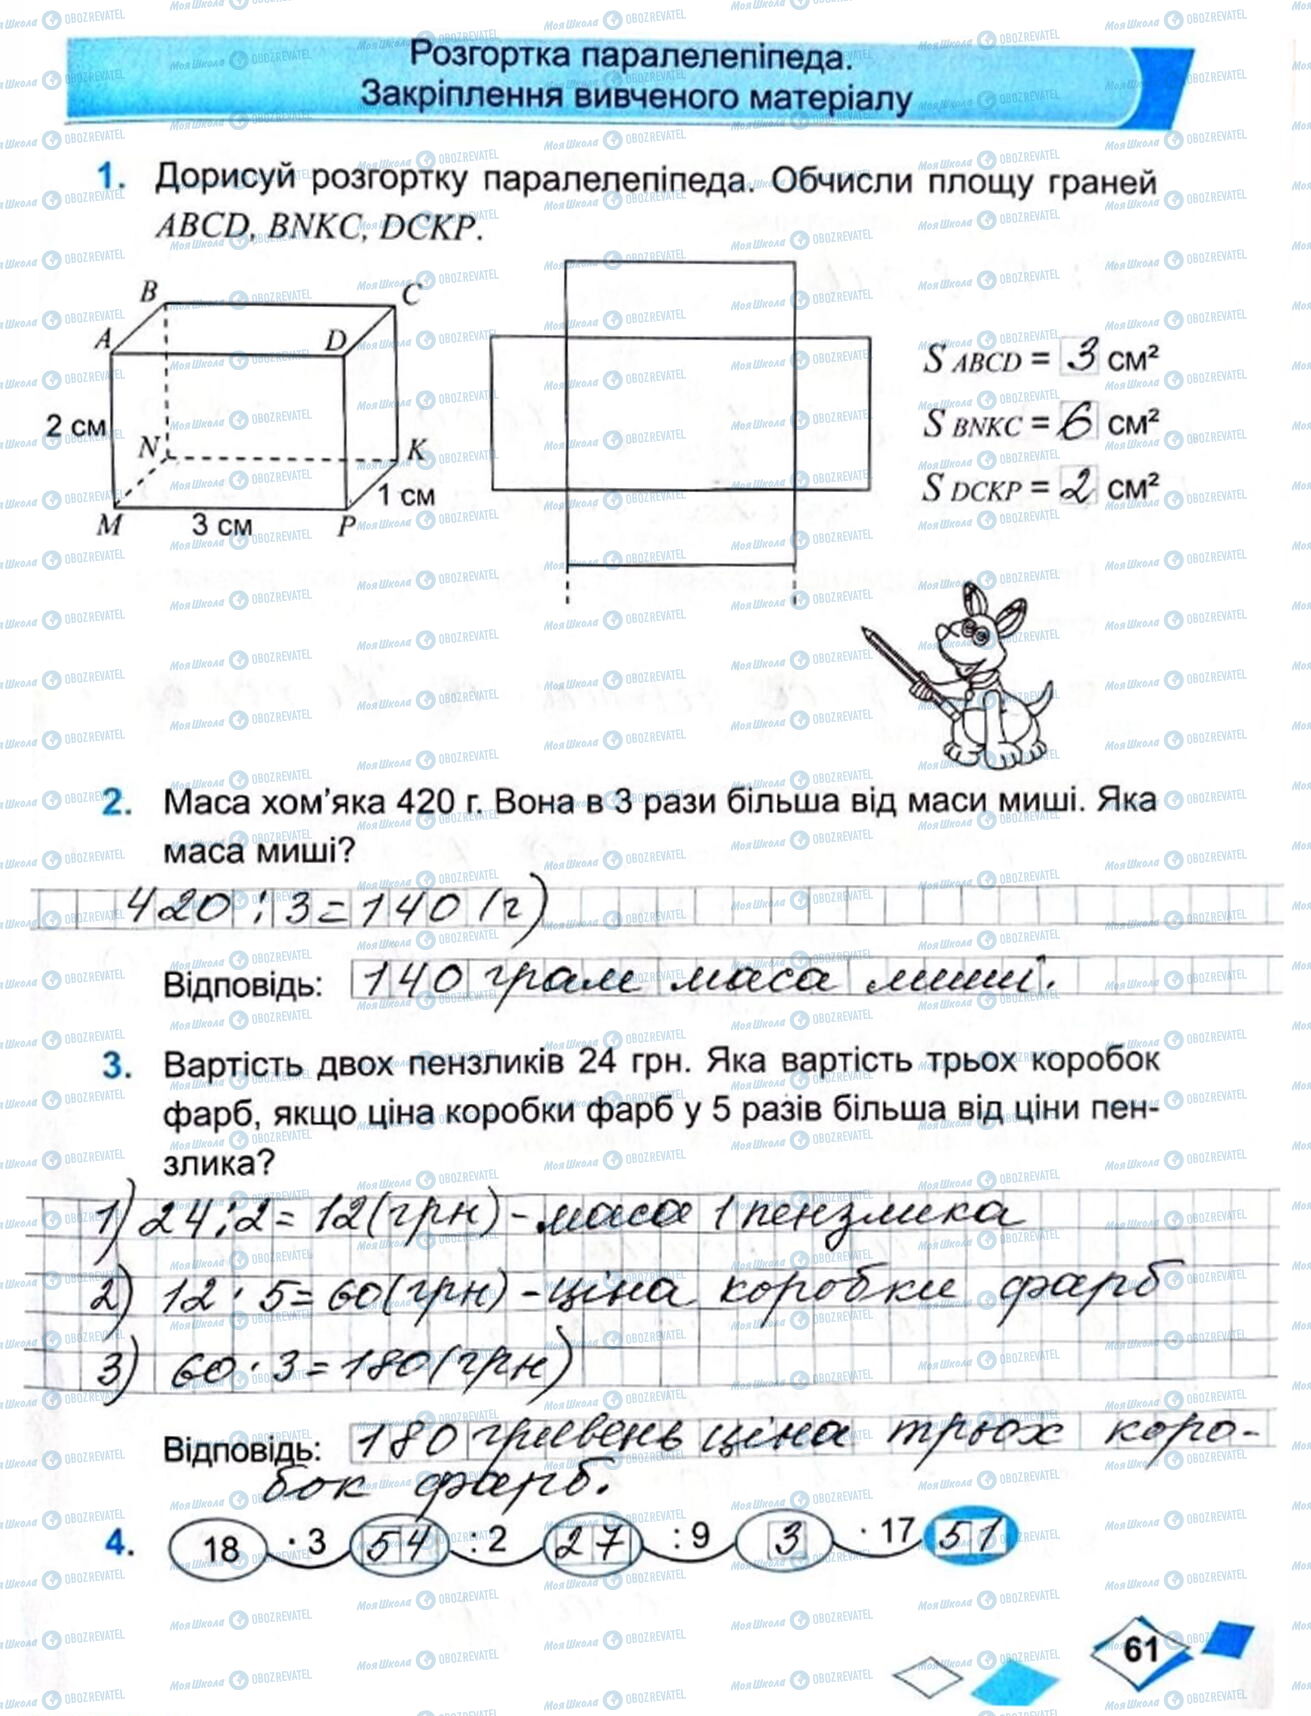 Розгортка паралелепіпеда.
Закріплення вивченого матеріалу
1. Дорисуй розгортку паралелепіпеда. Обчисли площу граней
ABCD, BNKC, DCKP.
B
C
A
D
2 см
N
K
1 см
M
3 см
P
S ABCD = 3 см²
S BNKC = 6 см²
S DCKP = 2 см²
2. Маса хом’яка 420 г. Вона в 3 рази більша від маси миші. Яка
маса миші?
420 : 3 = 140 (г)
Відповідь: 140 грам маса миші.
3. Вартість двох пензликів 24 грн. Яка вартість трьох коробок
фарб, якщо ціна коробки фарб у 5 разів більша від ціни пен-
злика?
1) 24 : 2 = 12 (грн) - маса 1 пензлика
2) 12 · 5 = 60 (грн) - ціна коробки фарб
3) 60 · 3 = 180 (грн)
Відповідь: 180 гривень ціна трьох коро-
бок фарб.
4. 18 · 3 54 : 2 27 : 9 3 · 17 51
61
Моя Школа OBOZREVATEL